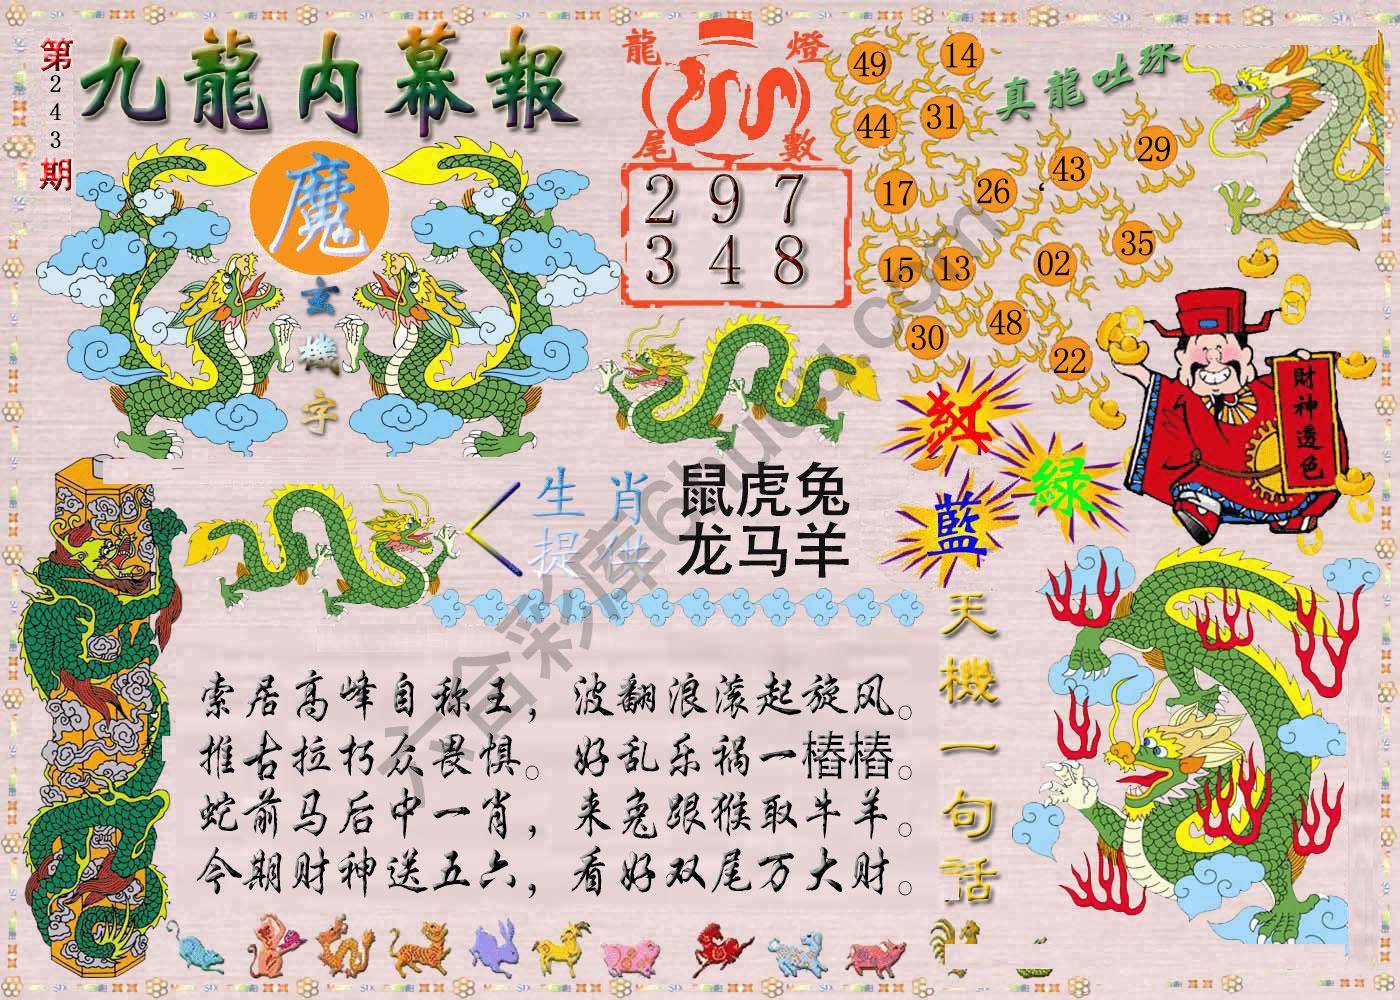 第243期
九龍内幕報
魔
玄機字
龍燈
尾數
2 9 7
3 4 8
真龍吐珠
49 14
44 31
17 26 43 29
15 13 02 35
30 48 22
財神透色
紅
綠
藍
生肖 鼠虎兔
提供 龙马羊
天機一句話
索居高峰自称王，波翻浪滚起旋风。
推古拉朽众畏惧。好乱乐祸一樁樁。
蛇前马后中一肖，来兔跟猴取牛羊。
今期财神送五六，看好双尾万大财。
六合彩库6huu.com